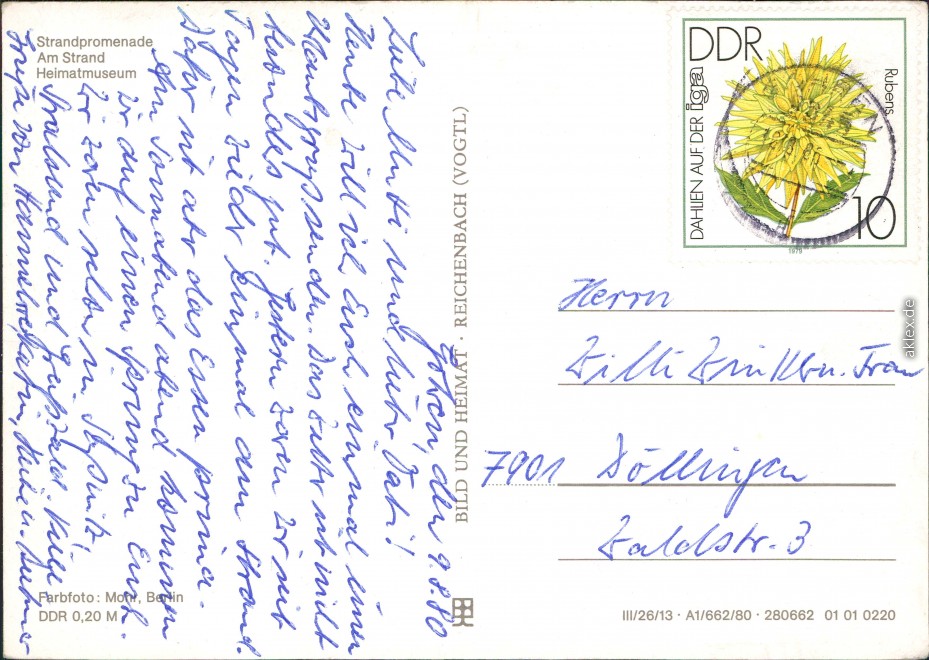 Strandpromenade
Am Strand
Heimatmuseum
den 9.8.80
Liebe Mutti und lieber Vati!
Heute will ich Euch einmal einen
Hauptgruss senden. Das Wetter ist nicht
besonders gut. Gestern waren wir seit
Tagen wieder einmal am Strand.
Dafür ist aber das Essen prima.
Am Sonnabend abend kommen
wir auf einen Sprung zu Euch.
Wir waren schon in Saßnitz,
Stralsund und Greifswald. Viele
Grüße von
Farbfoto: Mohr, Berlin
DDR 0,20 M
BILD UND HEIMAT · REICHENBACH (VOGTL)
DDR
DAHLIEN AUF DER iga
Rubens
10
1979
Herrn
Willi Winkler u. Frau
7901 Döllingen
Waldstr. 3
III/26/13 · A1/662/80 · 280662 01 01 0220
aklex.de